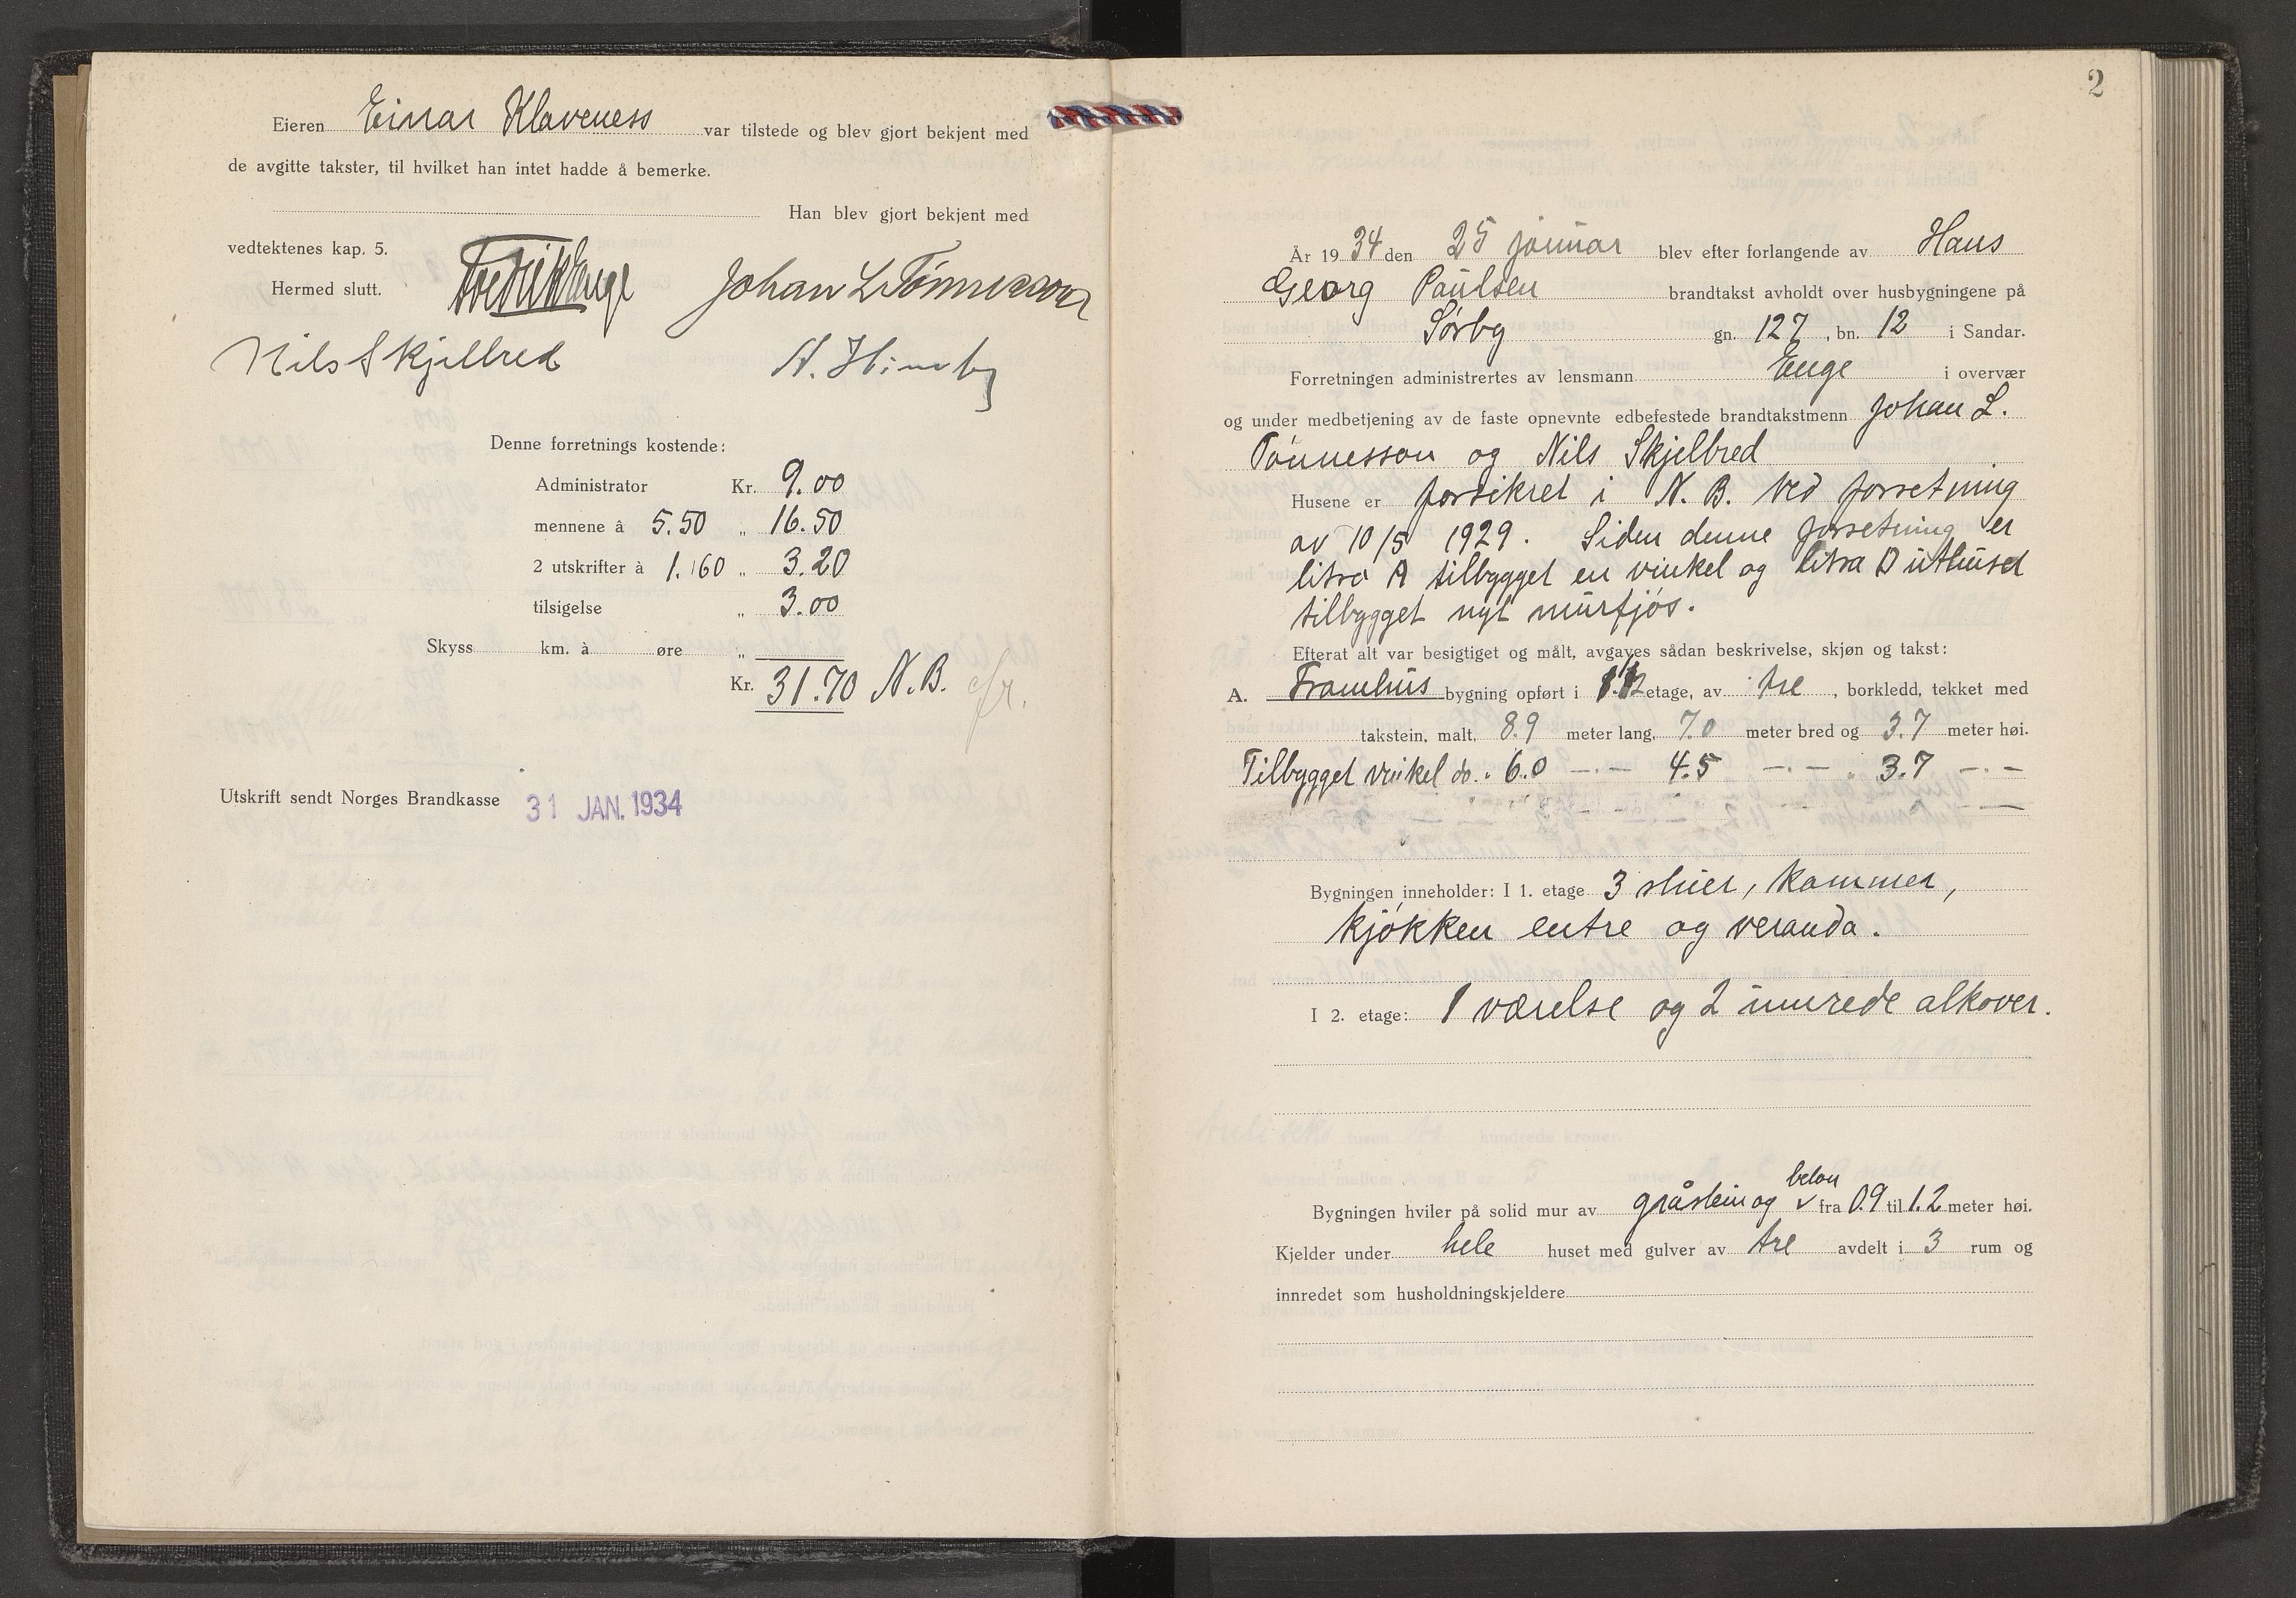 Eieren Einar Klaveness var tilstede og blev gjort bekjent med
de avgitte takster, til hvilket han intet hadde å bemerke.
Han blev gjort bekjent med
vedtektenes kap. 5.
Hermed slutt. Fredrik Enge Johan L Tönnesson
Nils Skjelbred
Denne forretnings kostende:
Administrator Kr. 9.00
mennene à 5.50 „ 16.50
2 utskrifter à 1.60 „ 3.20
tilsigelse „ 3.00
Skyss km. à øre „
Kr. 31.70 N.B.
Utskrift sendt Norges Brandkasse 31 JAN. 1934
2
År 1934 den 25 januar blev efter forlangende av Hans
Georg Paulsen brandtakst avholdt over husbygningene på
Sørby gn. 127, bn. 12 i Sandar.
Forretningen administrertes av lensmann Enge i overvær
og under medbetjening av de faste opnevnte edbefestede brandtakstmenn Johan L.
Tönnesson og Nils Skjelbred
Husene er forsikret i N. B. ved forretning
av 10/5 1929. Siden denne forretning er
litra A tilbygget en vinkel og litra D uthuset
tilbygget nyt murfjös.
Efterat alt var besigtiget og målt, avgaves sådan beskrivelse, skjøn og takst:
A. Framhus bygning opført i 1 1/2 etage, av tre, borkledd, tekket med
takstein, malt, 8.9 meter lang, 7.0 meter bred og 3.7 meter høi.
Tilbygget vinkel do. „ 6.0 —.— 4.5 —.— „ 3.7 —.—
Bygningen inneholder: I 1. etage 3 stuer, kammer,
kjökken entre og veranda.
I 2. etage: 1 værelse og 2 innrede alkover.
Bygningen hviler på solid mur av gråstein og beton fra 0.9 til 1.2 meter høi.
Kjelder under hele huset med gulver av tre avdelt i 3 rum og
innredet som husholdningskjeldere